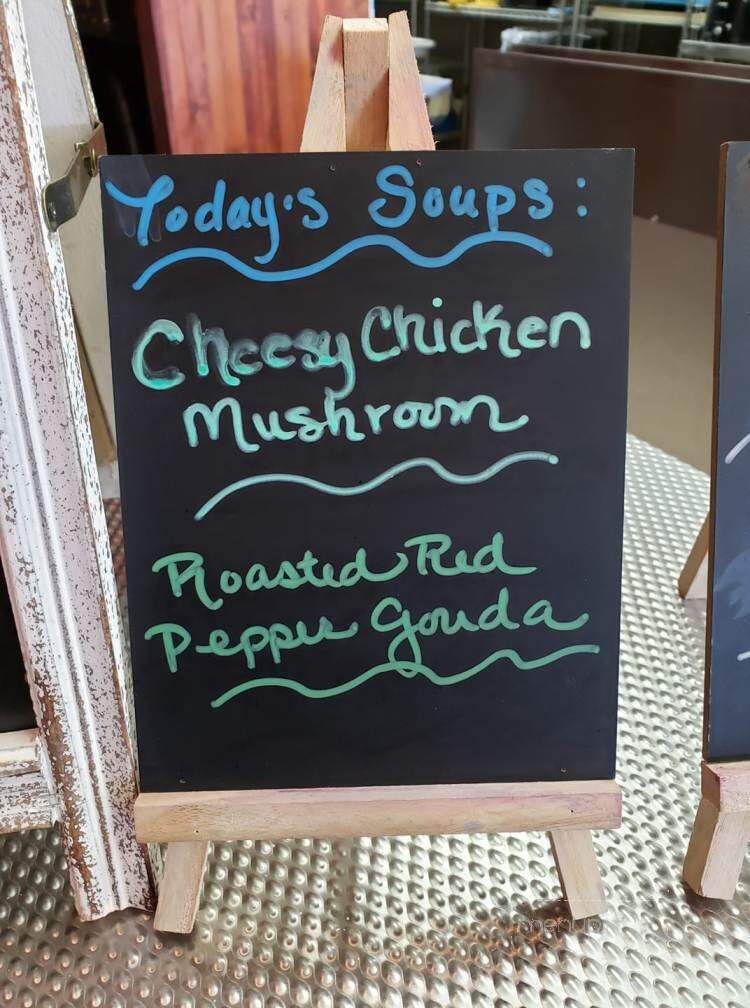 Today's Soups:
Cheesy Chicken
Mushroom
Roasted Red
Pepper Gouda